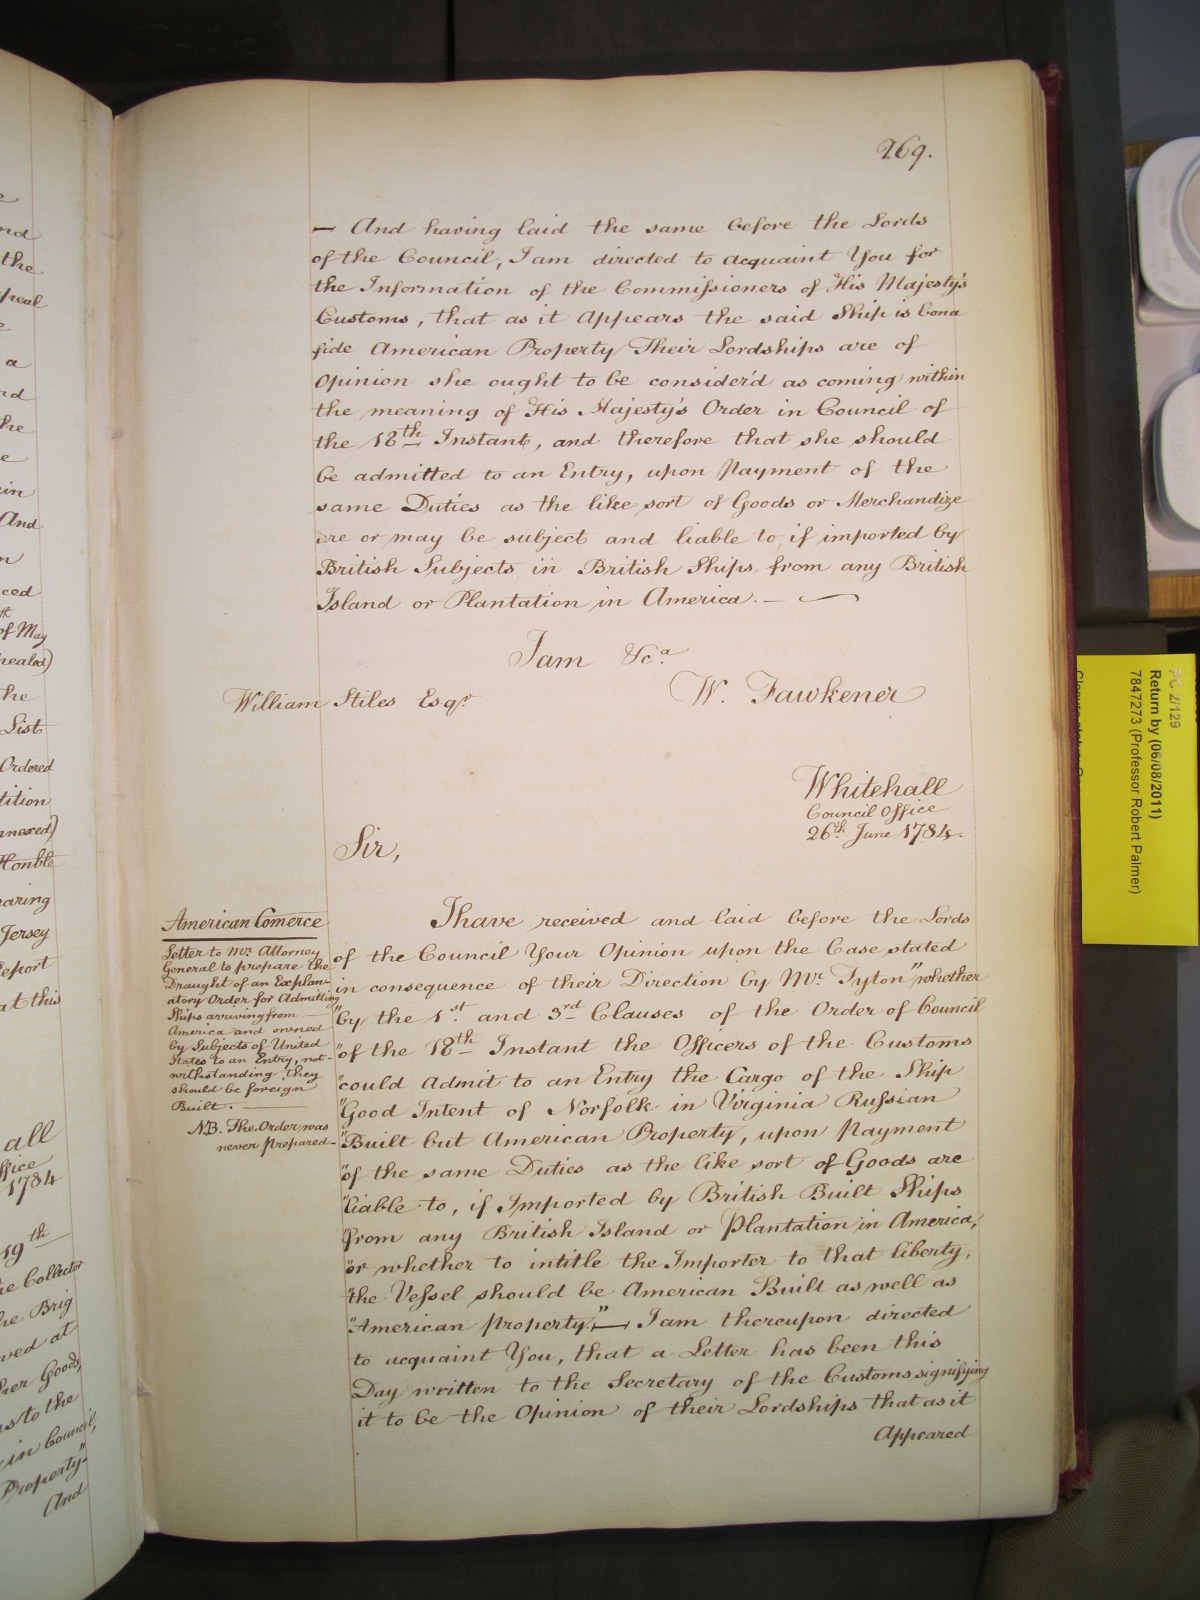 269.
— And having laid the same before the Lords
of the Council, I am directed to acquaint You for
the Information of the Commissioners of His Majesty's
Customs, that as it Appears the said Ship is bona
fide American Property Their Lordships are of
Opinion she ought to be consider'd as coming within
the meaning of His Majesty's Order in Council of
the 18th Instant, and therefore that she should
be admitted to an Entry, upon Payment of the
same Duties as the like sort of Goods or Merchandize
are or may be subject and liable to, if imported by
British Subjects in British Ships from any British
Island or Plantation in America. —
I am &c.a
W. Fawkener
William Stiles Esqr.
Whitehall
Council Office
26th June 1784.
Sir,
American Comerce
Letter to Mr. Attorney
General to prepare the
Draught of an Explan-
atory Order for Admitting
Ships arriving from
America and owned
by Subjects of United
States to an Entry, not-
withstanding they
should be foreign
Built.
N.B. The Order was
never prepared -
I have received and laid before the Lords
of the Council Your Opinion upon the Case stated
in consequence of their Direction by Mr. Tyton "whether
"by the 1st. and 3rd Clauses of the Order of Council
"of the 18th Instant the Officers of the Customs
"could Admit to an Entry the Cargo of the Ship
"Good Intent of Norfolk in Virginia Russian
"Built but American Property, upon Payment
"of the same Duties as the like sort of Goods are
"liable to, if Imported by British Built Ships
"from any British Island or Plantation in America,
"or whether to intitle the Importer to that liberty,
"the Vessel should be American Built as well as
"American Property." — I am thereupon directed
to acquaint You, that a Letter has been this
Day written to the Secretary of the Customs signifying
it to be the Opinion of their Lordships that as it
Appeared
nd
the
a
he
in
And
of May
the
List
Ordered
Honble
Jersey
Report
at this
all
1784
19th
he Collector
he Brig
ved at
her Goods,
as to the
in Council,
Property"
And
PC 2/129
Return by (06/08/2011)
7847273 (Professor Robert Palmer)